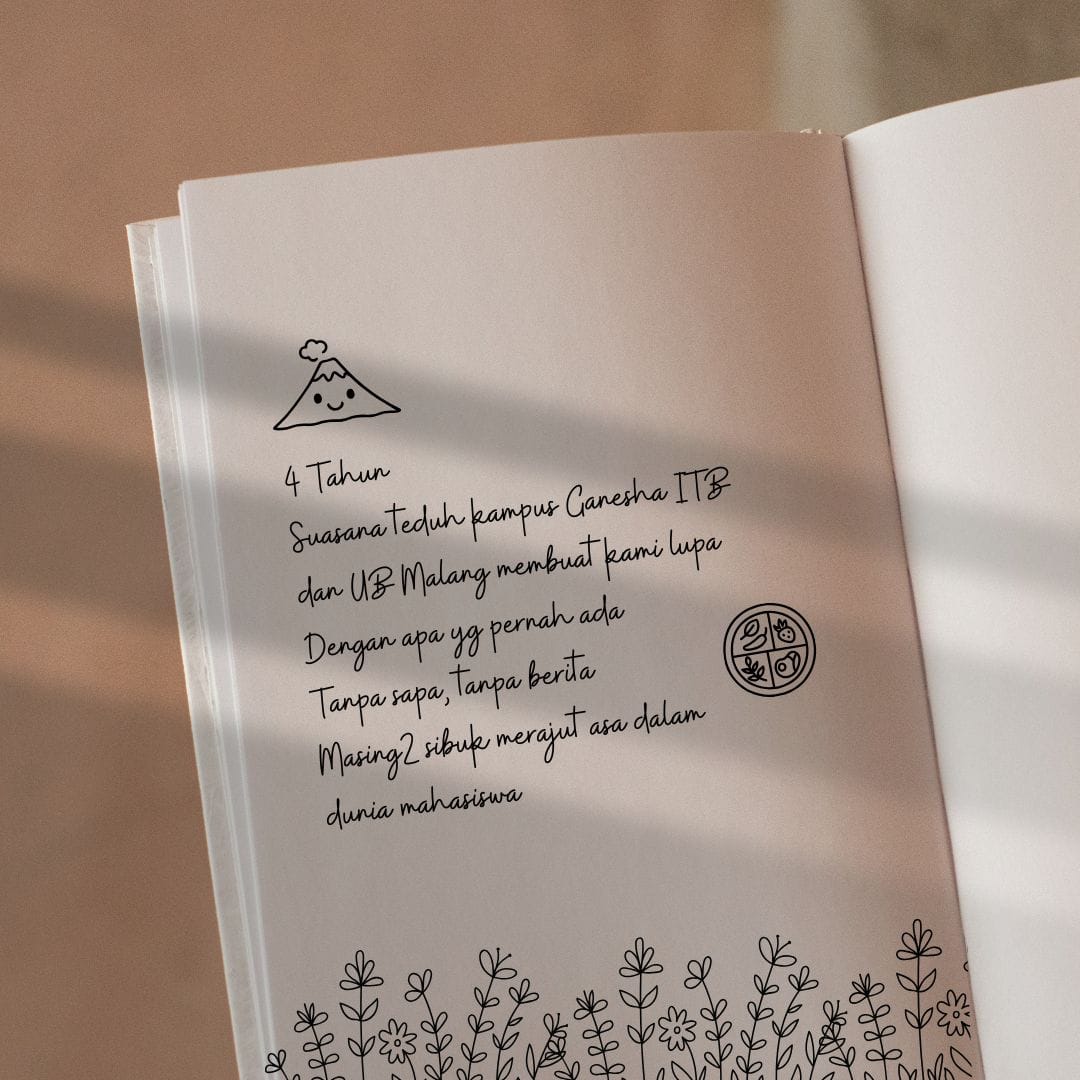 4 Tahun
Suasana teduh kampus Ganesha ITB
dan UB Malang membuat kami lupa
Dengan apa yg pernah ada
Tanpa sapa, tanpa berita
Masing2 sibuk merajut asa dalam
dunia mahasiswa